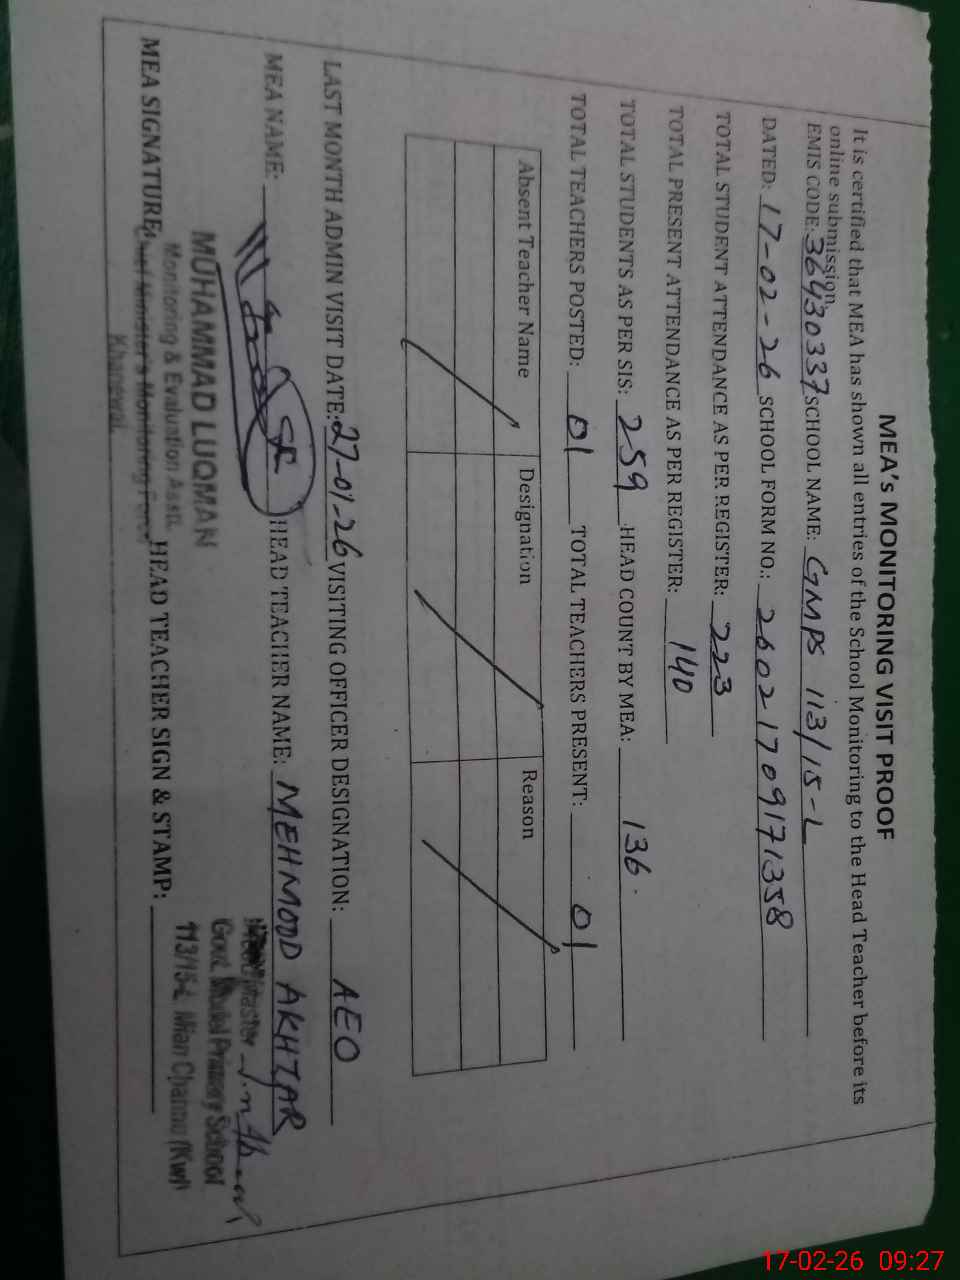 MEA's MONITORING VISIT PROOF
It is certified that MEA has shown all entries of the School Monitoring to the Head Teacher before its
online submission.
EMIS CODE: 36430337 SCHOOL NAME: GMPS 113/15-L
DATED: 17-02-26 SCHOOL FORM NO.: 26021709171358
TOTAL STUDENT ATTENDANCE AS PER REGISTER: 223
TOTAL PRESENT ATTENDANCE AS PER REGISTER: 140
TOTAL STUDENTS AS PER SIS: 259 HEAD COUNT BY MEA: 136
TOTAL TEACHERS POSTED: 01 TOTAL TEACHERS PRESENT: 01
Absent Teacher Name Designation Reason
LAST MONTH ADMIN VISIT DATE: 27-01-26 VISITING OFFICER DESIGNATION: AEO
MEA NAME: HEAD TEACHER NAME: MEHMOOD AKHTAR
MUHAMMAD LUQMAN
Monitoring & Evaluation Asstt.
Chief Minister's Monitoring Force
Khanewal
Master
Govt. Model Primary School
113/15-L Mian Channu (Kwl)
MEA SIGNATURE: HEAD TEACHER SIGN & STAMP:
17-02-26 09:27